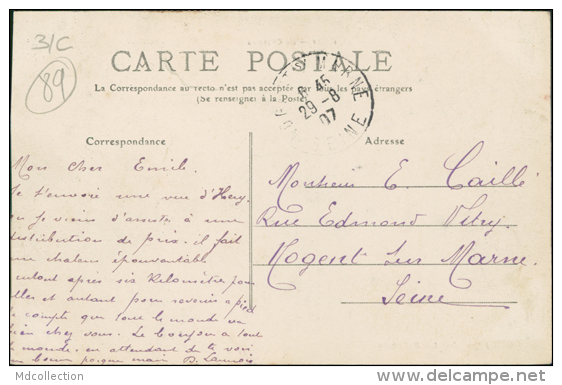 31C
89
CARTE POSTALE
La Correspondance au recto n'est pas acceptée par tous les pays étrangers
(Se renseigner à la Poste)
6 45
29 - 8
07
MARNE
Correspondance
Adresse
Mon cher Emile.
Je t'envoie une vue d'Hery
ou je viens d'assister à une
distribution de prix. il fait
une chaleur épouvantable
surtout après six Kilomètres pour
aller et autant pour revenir a pied
je compte que tout le monde va
bien chez vous. Le bonjour a tout
le monde, en attendant de te voir
un bonne poignée main
Monsieur E. Caillé
Rue Edmond Vitry.
Nogent sur Marne.
Seine
Mdcollection
delcampe.net